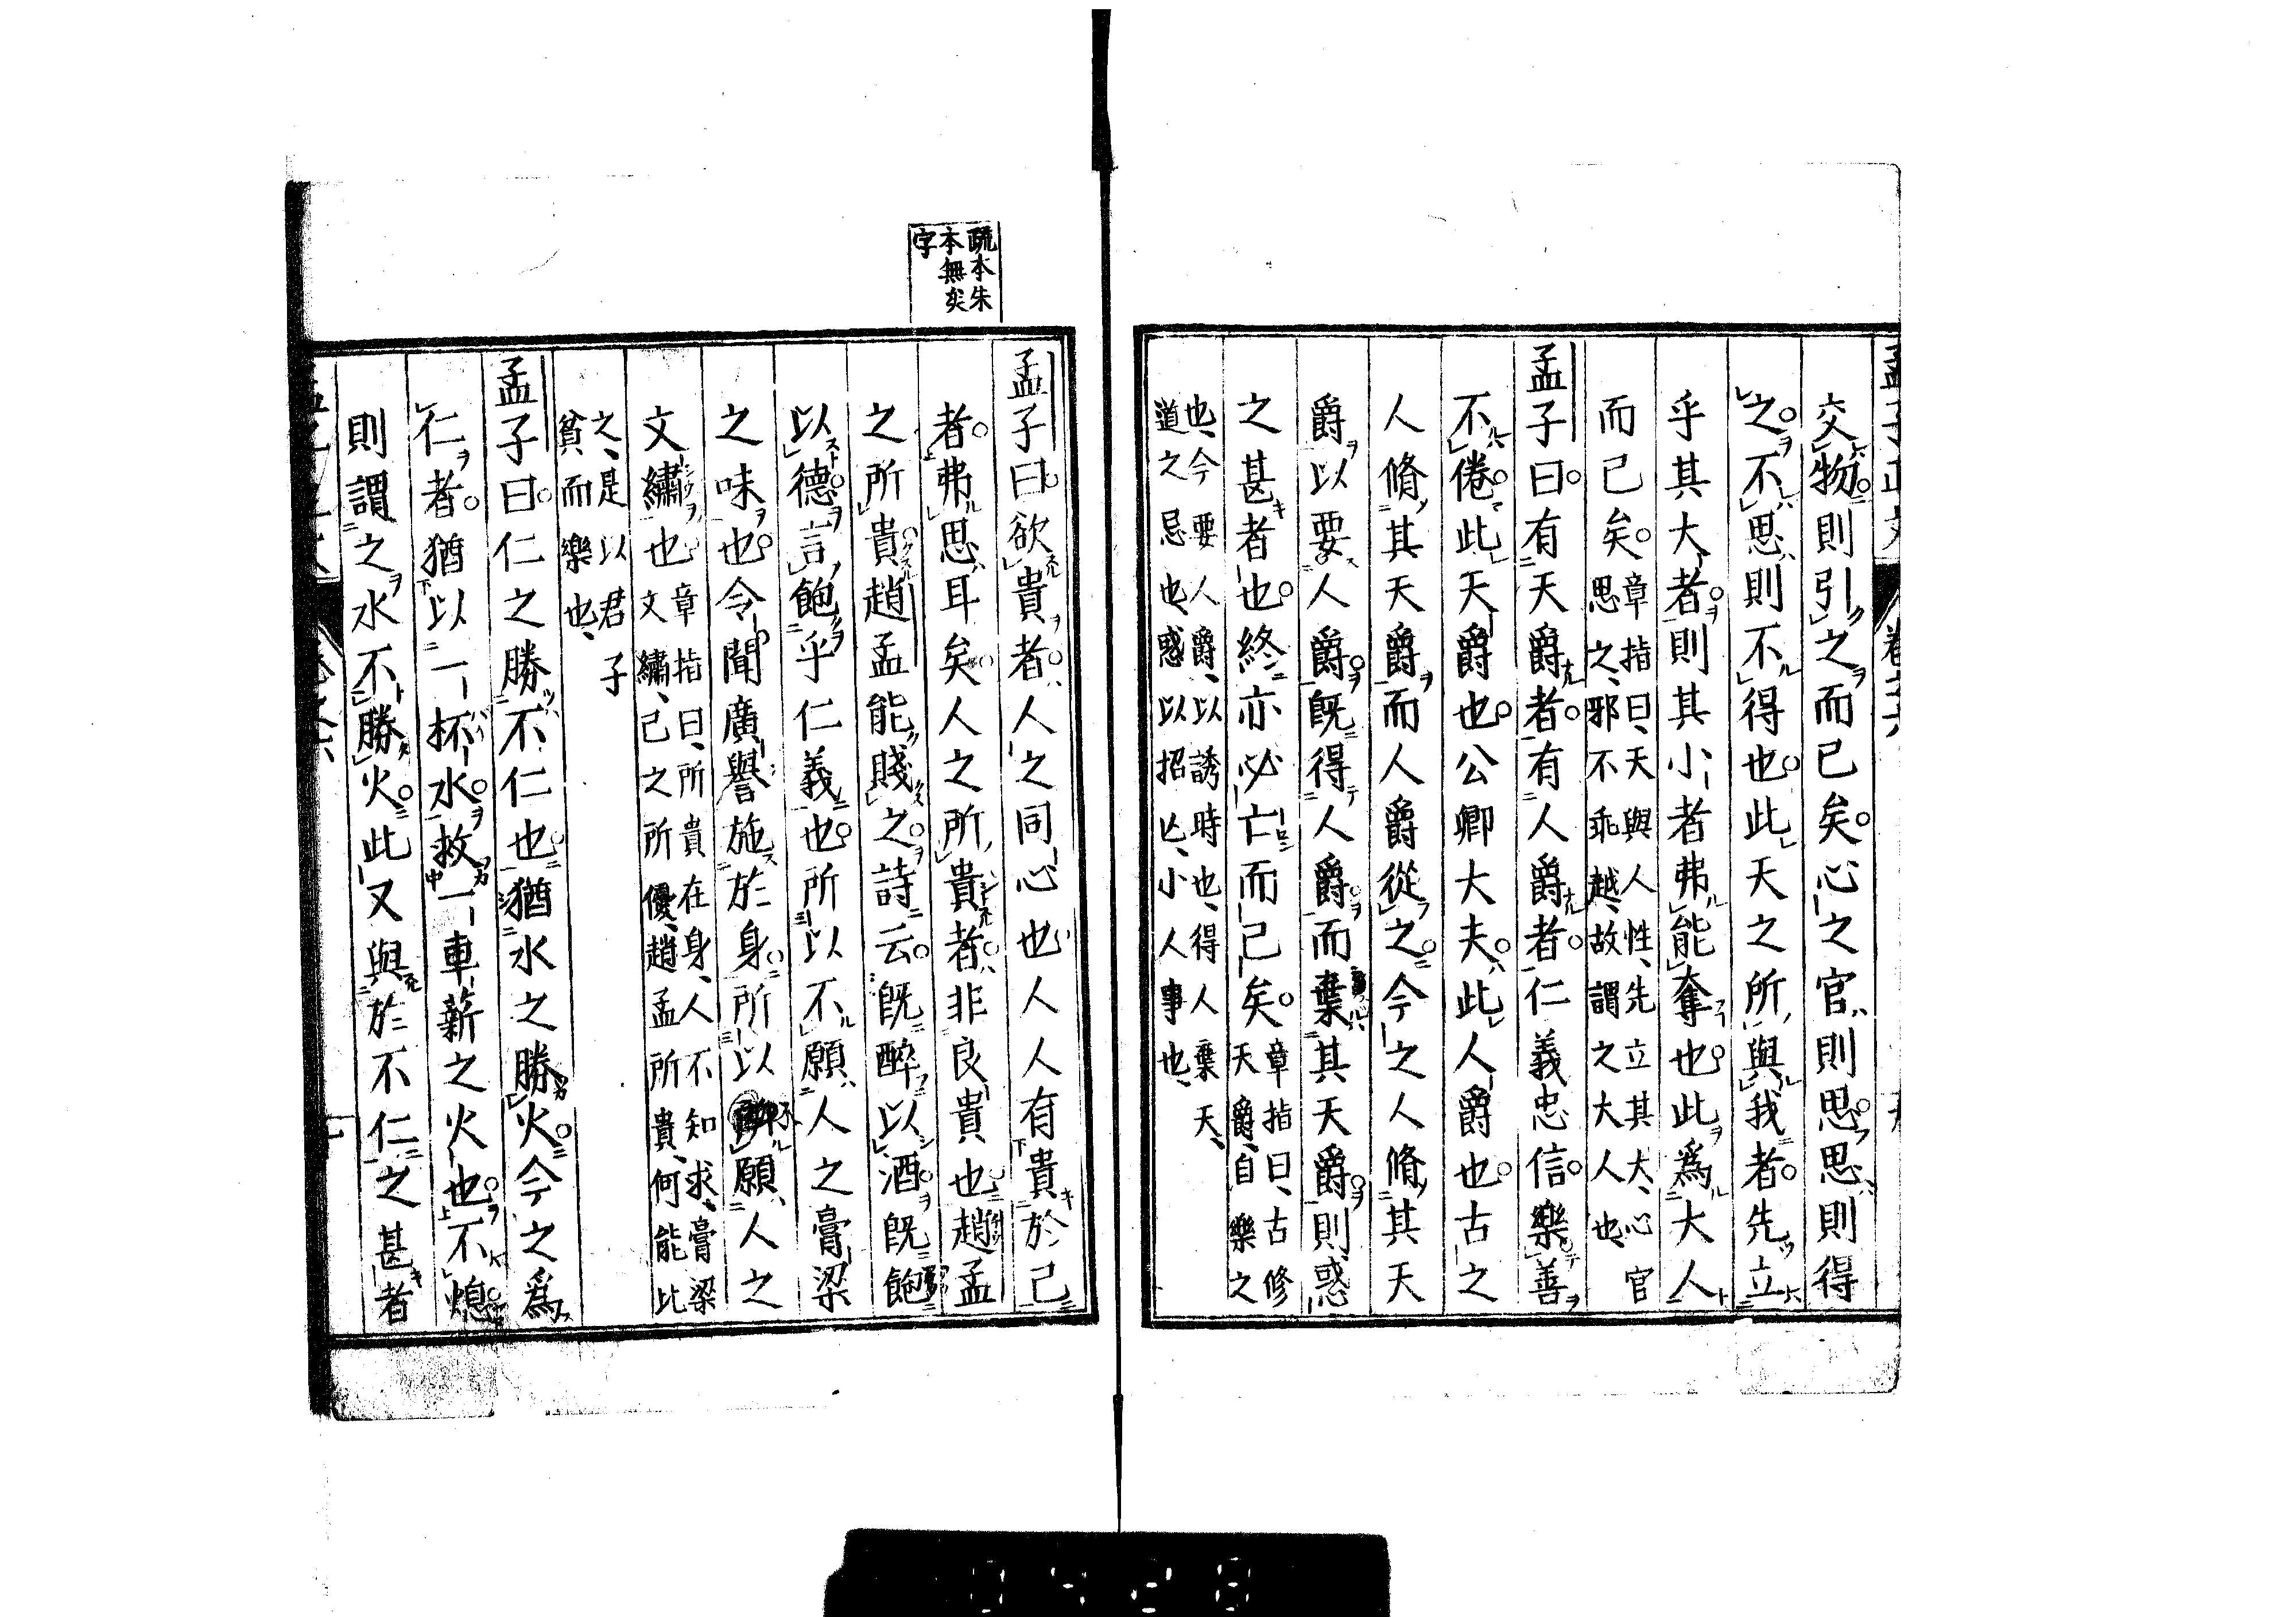 孟子正文
卷之六
交物則引之而已矣心之官則思思則得
之不思則不得也此天之所與我者先立
乎其大者則其小者弗能奪也此爲大人
而已矣章指曰天與人性先立其大心官
思之邪不乖越故謂之大人也
孟子曰有天爵者有人爵者仁義忠信樂善
不倦此天爵也公卿大夫此人爵也古之
人脩其天爵而人爵從之今之人脩其天
爵以要人爵既得人爵而棄其天爵則惑
之甚者也終亦必亡而已矣章指曰古修
天爵自樂之
也今要人爵以誘時也得人棄天
道之忌也惑以招亡小人事也
疏本朱
本無矣
字
孟子曰欲貴者人之同心也人人有貴於己
者弗思耳矣人之所貴者非良貴也趙孟
之所貴趙孟能賤之詩云既醉以酒既飽
以德言飽乎仁義也所以不願人之膏粱
之味也令聞廣譽施於身所以不願人之
文繡也章指曰所貴在身人不知求膏粱
文繡己之所優趙孟所貴何能比
之是以君子
貧而樂也
孟子曰仁之勝不仁也猶水之勝火今之爲
仁者猶以一杯水救一車薪之火也不熄
則謂之水不勝火此又與於不仁之甚者